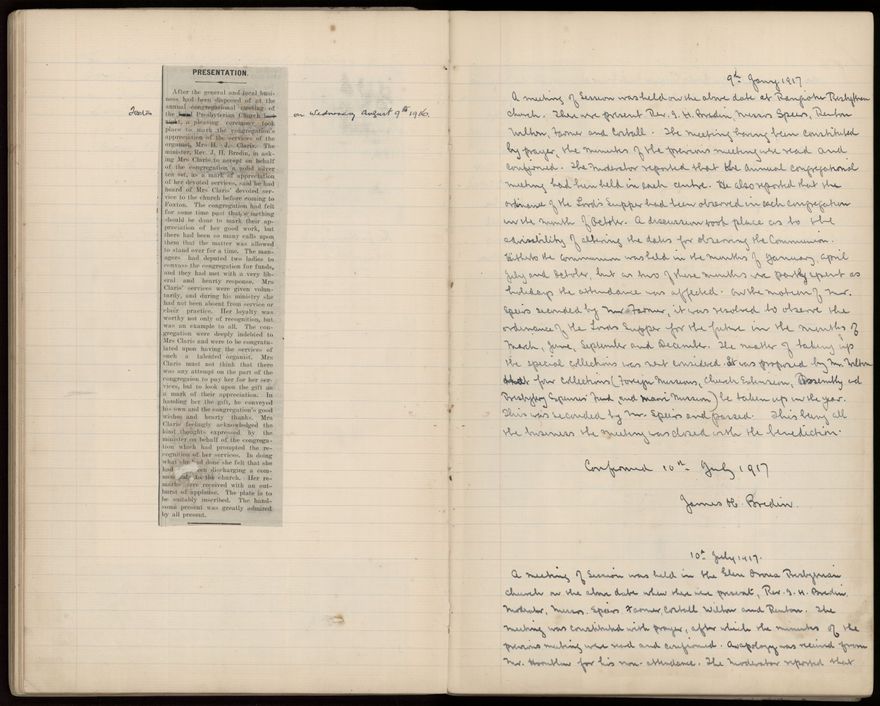 PRESENTATION.
After the general and local busi-
ness had been disposed of at the
annual congregational meeting of
the local Presbyterian Church last
night, a pleasing ceremony took
place to mark the congregation's
appreciation of the services of the
organist, Mrs H. J. Claris. The
minister, Rev. J. H. Bredin, in ask-
ing Mrs Claris to accept on behalf
of the congregation a solid silver
tea set, as a mark of appreciation
of her devoted services, said he had
heard of Mrs Claris' devoted ser-
vice to the church before coming to
Foxton. The congregation had felt
for some time past that something
should be done to mark their ap-
preciation of her good work, but
there had been so many calls upon
them that the matter was allowed
to stand over for a time. The man-
agers had deputed two ladies to
canvass the congregation for funds,
and they had met with a very lib-
eral and hearty response. Mrs
Claris' services were given volun-
tarily, and during his ministry she
had not been absent from service or
choir practice. Her loyalty was
worthy not only of recognition, but
was an example to all. The con-
gregation were deeply indebted to
Mrs Claris and were to be congratu-
lated upon having the services of
such a talented organist. Mrs
Claris must not think that there
was any attempt on the part of the
congregation to pay her for her ser-
vices, but to look upon the gift as
a mark of their appreciation. In
handing her the gift, he conveyed
his own and the congregation's good
wishes and hearty thanks. Mrs
Claris feelingly acknowledged the
kind thoughts expressed by the
minister on behalf of the congrega-
tion which had prompted the re-
cognition of her services. In doing
what she had done she felt that she
had been discharging a com-
mon to the church. Her re-
marks were received with an out-
burst of applause. The plate is to
be suitably inscribed. The hand-
some present was greatly admired
by all present.
Foxton
on Wednesday August 9th 1916.
9th Jany 1917
A meeting of Session was held on the above date at Rangiotu Presbyterian
church. There were present Rev. J. H. Bredin, Messrs Speirs, Renton
Wilton, Farmer and Costall. The meeting having been constituted
by prayer, the minutes of the previous meeting were read and
confirmed. The Moderator reported that the Annual congregational
meeting had been held in each centre. He also reported that the
ordinance of the Lord's Supper had been observed in each congregation
in the month of October. A discussion took place as to the
advisability of altering the dates for observing the Communion.
Hitherto the Communion was held in the months of January, April
July and October, but as two of these months are partly spent as
holidays the attendance was affected. On the motion of Mr.
Speirs seconded by Mr Farmer, it was resolved to observe the
ordinance of the Lord's Supper for the future in the months of
March, June, September and December. The matter of taking up
the special collections was next considered. It was proposed by Mr. Wilton
that four Collections (Foreign Missions, Church Extension, Assembly and
Presbytery Expenses Fund and Maori Mission) be taken up in the year.
This was seconded by Mr. Speirs and passed. This being all
the business the meeting was closed with the benediction.
Confirmed 10th July 1917
James H. Bredin.
10th July 1917.
A meeting of Session was held in the Presbyterian
church on the above date when there were present, Rev. J. H. Bredin,
Moderator, Messrs. Speirs Farmer, Costall Wilton and Renton. The
meeting was constituted with prayer, after which the minutes of the
previous meeting were read and confirmed. An apology was received from
Mr. for his non-attendance. The Moderator reported that